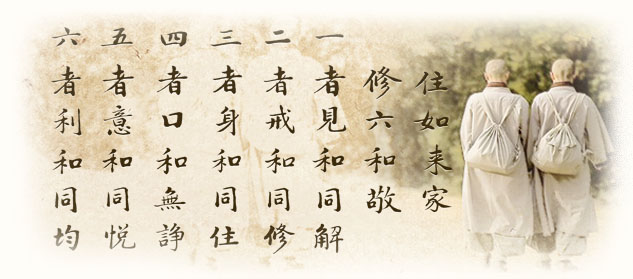 住如来家
修六和敬
一者見和同解
二者戒和同修
三者身和同住
四者口和無諍
五者意和同悦
六者利和同均